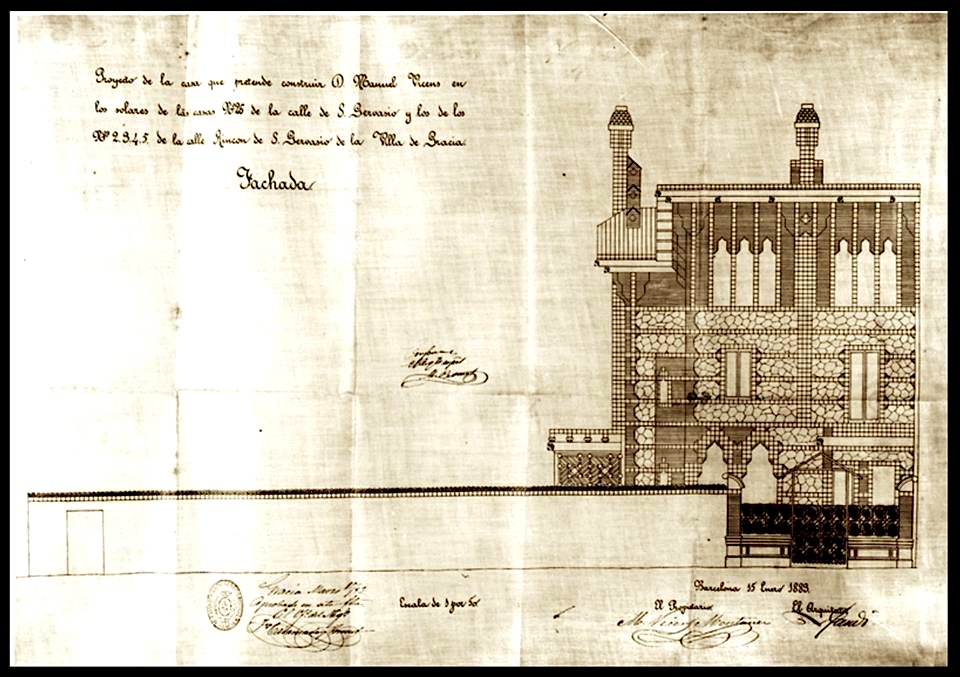 Proyecto de la casa que pretende construir D Manuel Vicens en
los solares de las casas Nº 26 de la calle de S. Gervasio y los de los
Nº 2.3.4.5. de la calle Rincon de S. Gervasio de la Villa de Gracia.
Fachada
Gracia
Escala de 1 por 50
Barcelona 15 Enero 1883.
El Propietario
El Arquitecto
M. Vicens Montaner
Gaudí